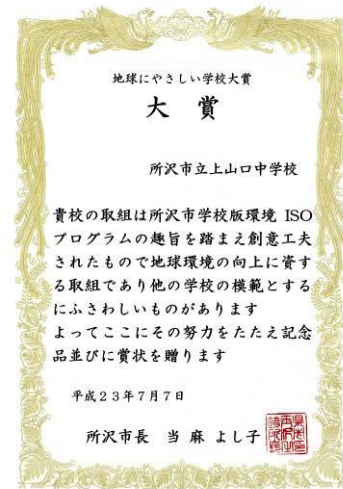 地球にやさしい学校大賞
大賞
所沢市立上山口中学校
貴校の取組は所沢市学校版環境 ISO
プログラムの趣旨を踏まえ創意工夫
されたもので地球環境の向上に資す
る取組であり他の学校の模範とする
にふさわしいものがあります
よってここにその努力をたたえ記念
品並びに賞状を贈ります
平成23年7月7日
所沢市長 当麻よし子